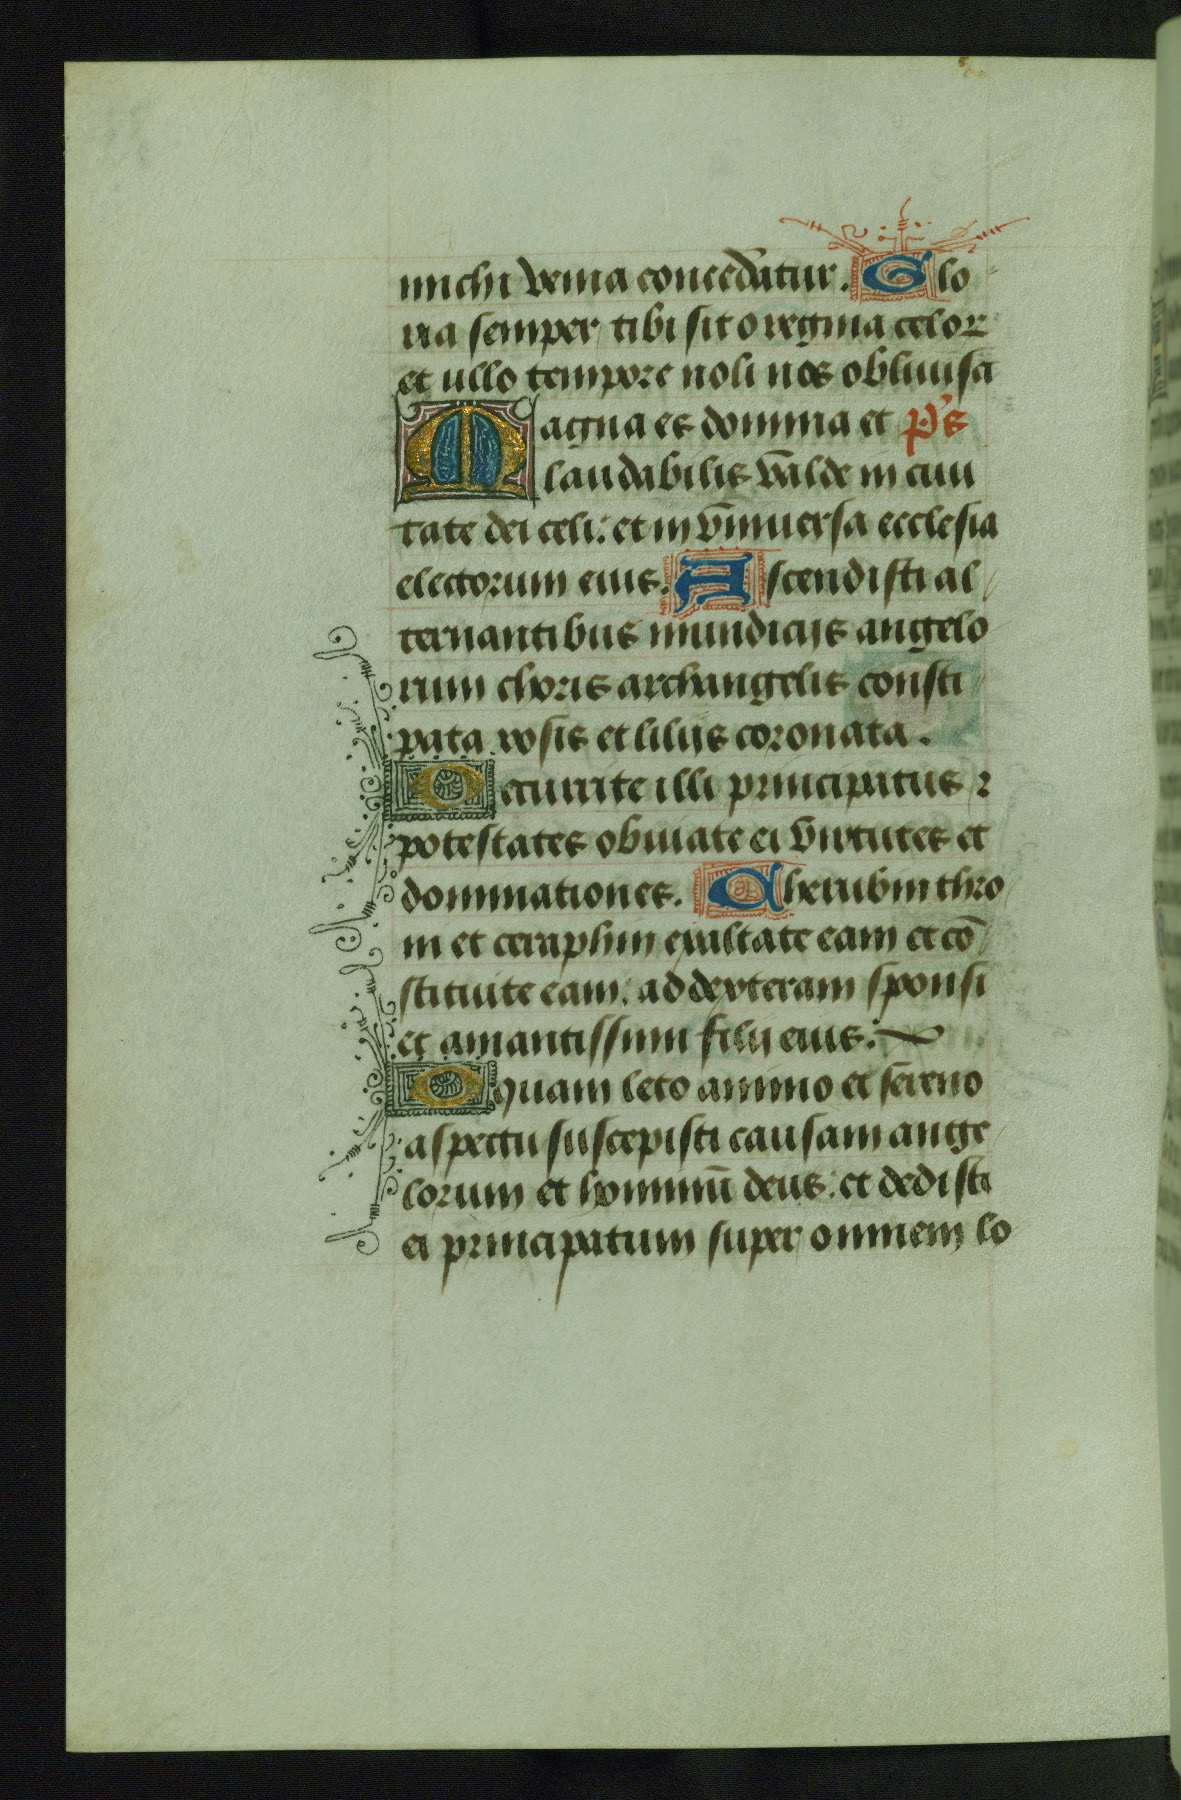 michi venia concedatur. Glo
ria semper tibi sit o regina celor
et ullo tempore noli nos obliuisci
Magna es domina et p̄s
laudabilis valde in ciui
tate dei celi: et in vniuersa ecclesia
electorum eius. Ascendisti al
ternantibus mundicijs angelo
rum choris archangelis consti
pata rosis et lilijs coronata.
Occurrite illi principatus ꝛ
potestates obuiate ei virtutes et
dominationes. Cherubin thro
ni et ceraphin exaltate eam et cō
stituite eam: ad dexteram sponsi
et amantissimi filij eius:
O quam leto animo et sereno
aspectu suscepisti causam ange
lorum et hominū deus: et dedisti
ei principatum super omnem lo